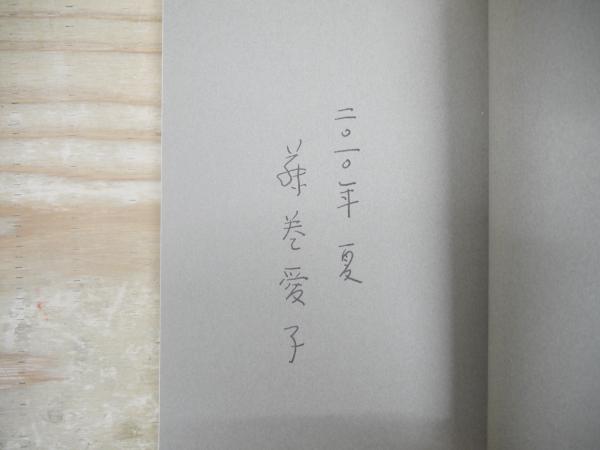 二〇一〇年 夏
藤巻愛子